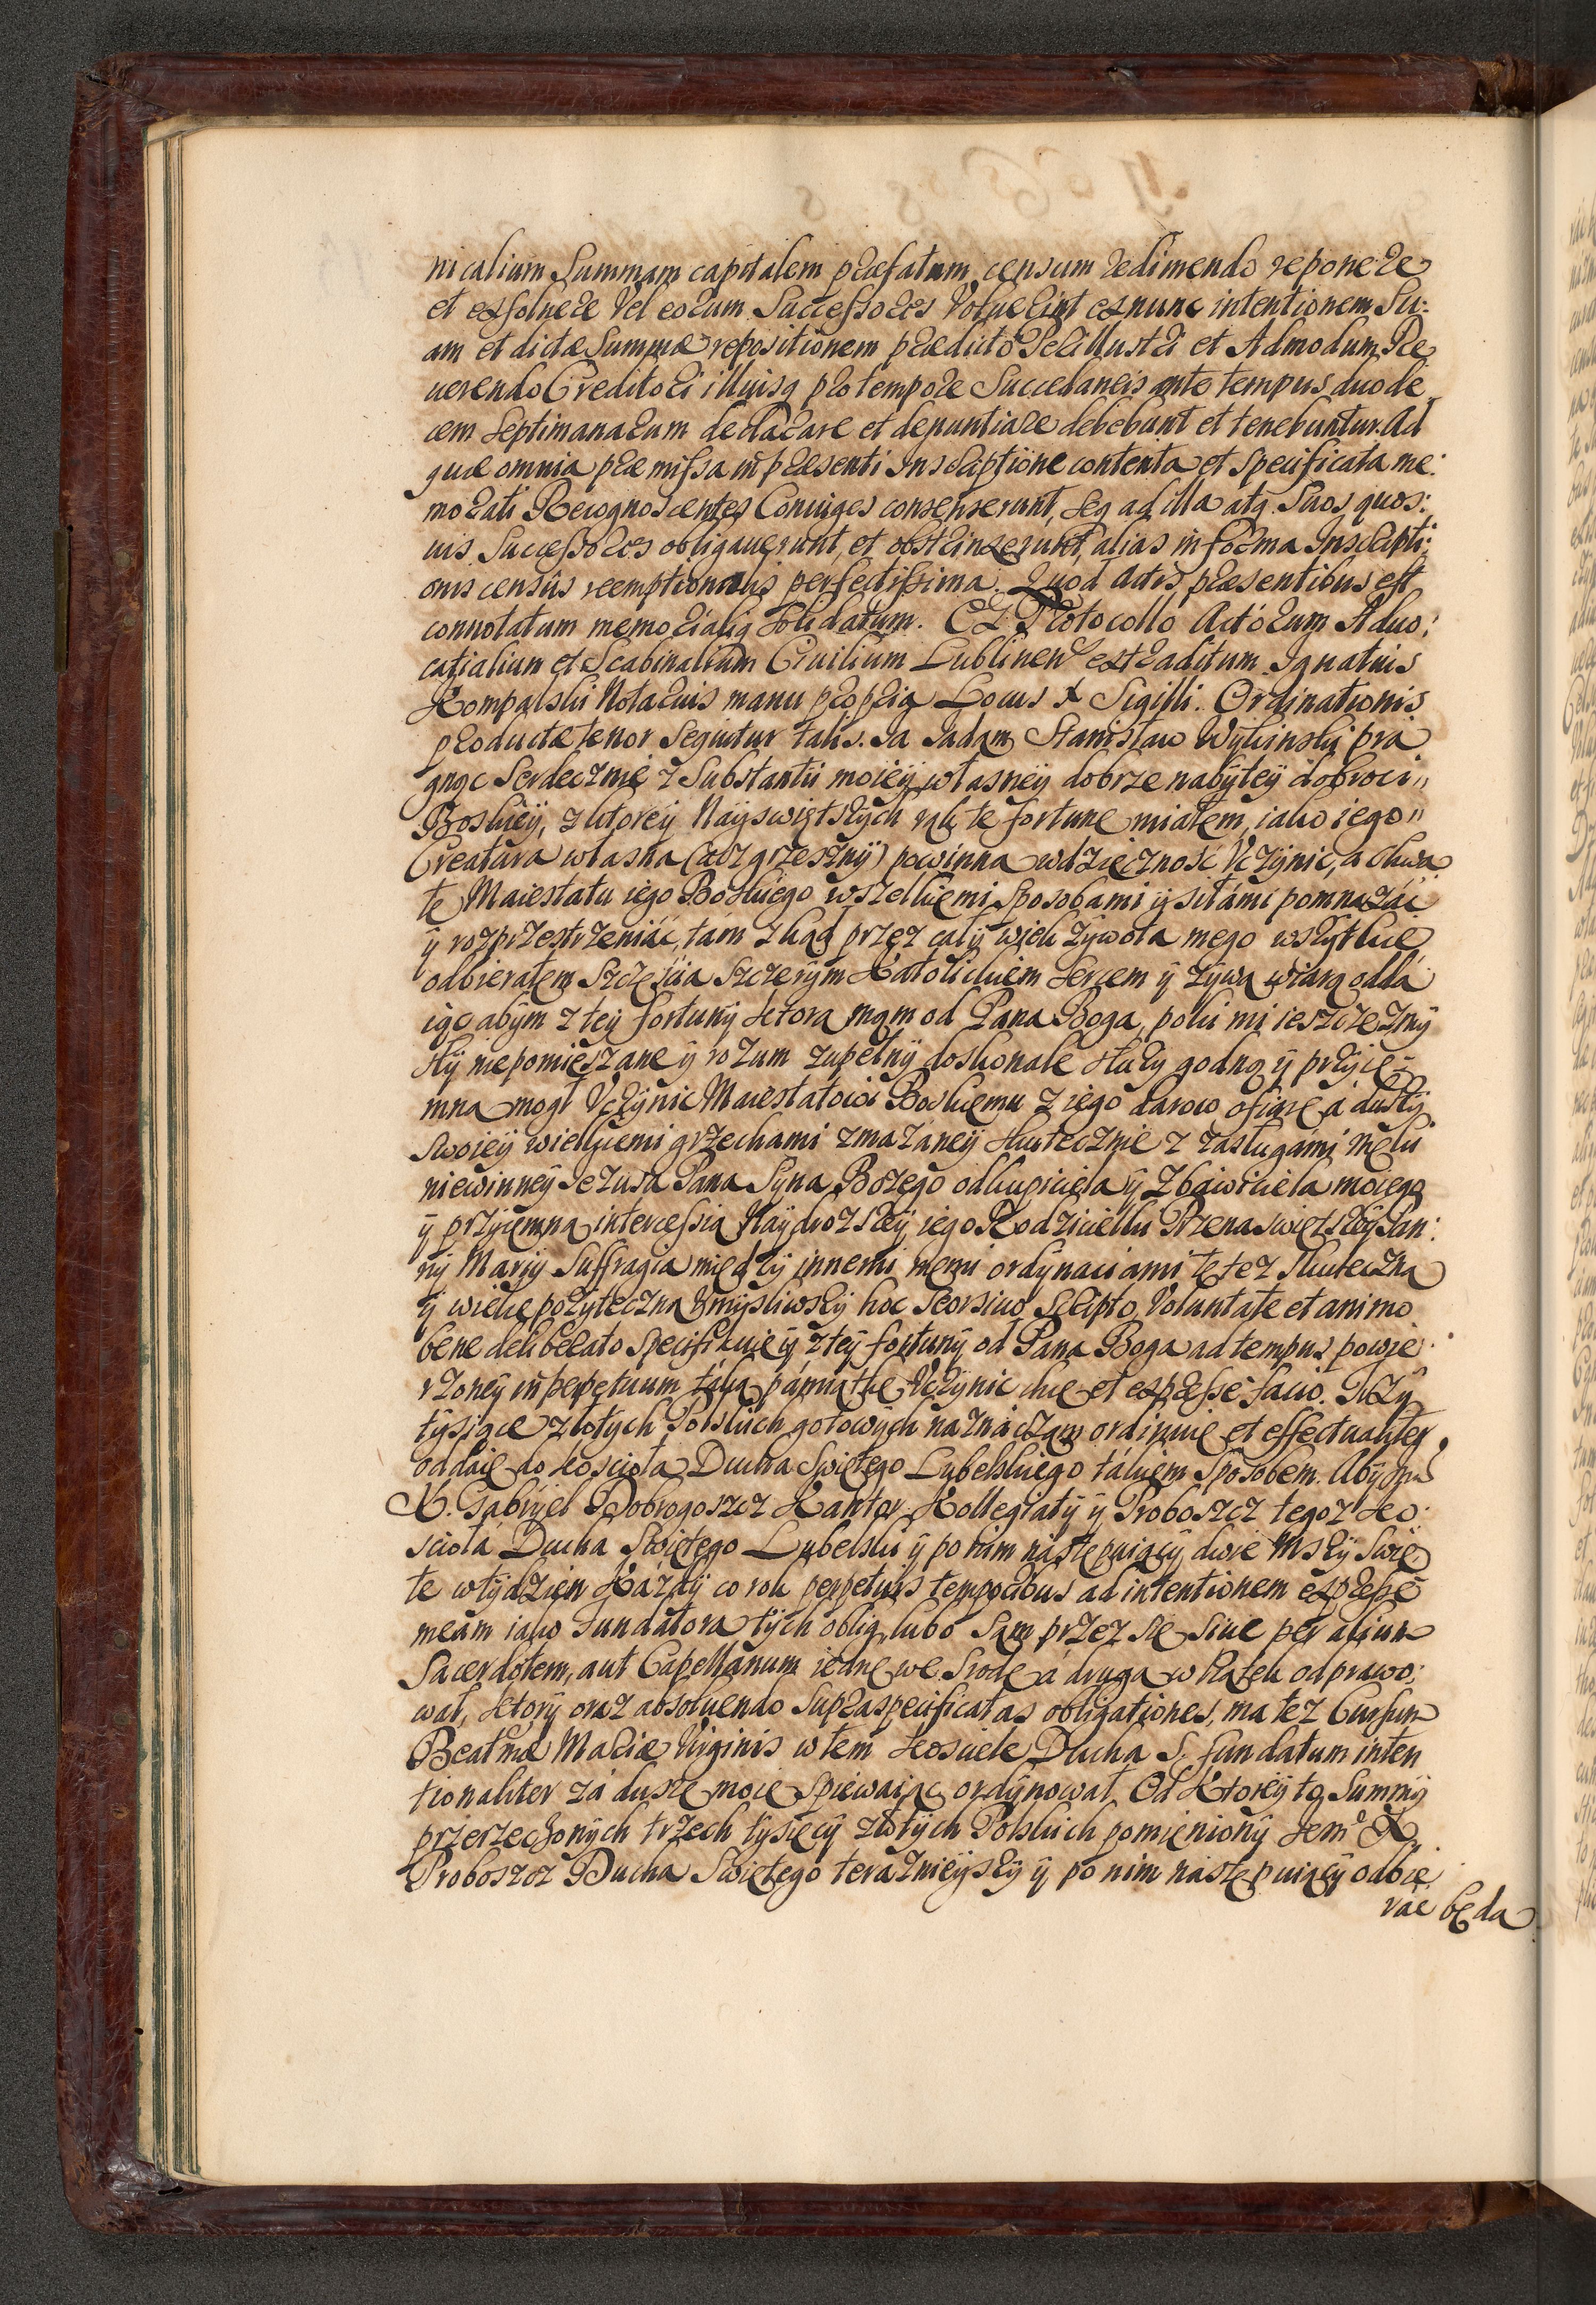 nicalium Summam capitalem præfatam censum redimendo reponere
et exsolvere Vel eorum Successores Voluerint exnunc intentionem Su:
am et dictæ Summæ repositionem prædicto Perillustri et Admodum Re
uerendo Creditori illiusq pro tempore Succedaneis ante tempus duode
cem Septimanarum declarare et denuntiare debebunt et tenebuntur. Ad
quæ omnia præmissa in præsenti Inscriptione contenta et Specificata me:
morati Recognoscentes Coniuges consenserunt, seq ad illa atq Suos quos:
uis Successores obligauerunt, et obstrinxerunt, alias in forma Inscripti:
onis censûs reemptionalis perfectissima. Quod Actis præsentibus est
connotatum memorialiq solidatum. Ex Protocollo Actorum Aduo:
catialium et Scabinalium Ciuilium Lublinen est raditum Ignatius
Kompalski Notarius manu propria Locus X Sigilli. Ordinationis
productæ tenor Sequitur talis. Ia Iadam Stanisław Wylinski pra
gnąc Serdecznie z Substantii moieÿ własneÿ dobrze nabÿteÿ dobroci
Boskieÿ, z ktoreÿ Naÿswiętszÿch rąk te fortune miałem, iako iego
Creatura własna (acz grzesznÿ) powinna wdzięcznosć Vczÿnić, a chwa
łę Maiestatu iego Boskiego wszelkiemi Sposobami ÿ siłami pomnażać
ÿ rozprzestrzeniáć, tám zkąd przez całÿ wiek żÿwota mego wszÿtkie
odbierałem szczęścia szczerÿm Katolickiem sercem ÿ żÿwą wiarą odda
iąc abÿm z teÿ fortunÿ ktorą mąm od Pana Boga, poki mi ieszcze zmÿ
słÿ niepomieszane ÿ rozum zupełnÿ doskonale słuzy godną ÿ przÿie
mną mogł Vczÿnic Maiestatowi Boskiemu z iego darow ofiarę á duszÿ
swoieÿ wielkiemi grzechami zmazáneÿ skutecznie z zasługámi męki
niewinneÿ Iezusa Pana Sÿna Bożego odkupiciela ÿ Zbáwiciela moiego
ÿ przÿiemną intercessią Naÿdrozszeÿ iego Rodzicielki Przenaswiętszeÿ Pan:
nÿ Mariÿ Suffragia międzÿ innemi memi ordÿnaciami tę tez skuteczną
ÿ wielce pożÿteczną Vmÿsliwszÿ hoc seorsiuo Scripto Voluntate et animo
bene deliberato Specifikuię ÿ z teÿ fortunÿ od Pana Boga ad tempus powie
rzoneÿ in perpetuum táką pámiątkę Vczÿnic chcę et expresse facio. Trzÿ
tÿsiące złotÿch Polskich gotowÿch náznáczam ordinuię et effectualiter
oddaię do Kosciołá Ducha Swiętego Lubelskiego tákiem Sposobem. Abÿ
X. Gabrÿel Dobrogoszcz Kantor Kollegiatÿ ÿ Proboszcz tegoz Ko
sciołá Ducha Swiętego Lubelski ÿ po nim nástępuiącÿ dwie Mszÿ Swie
te w tÿdzien kazdÿ co rok perpetuis temporibus ad intentionem expresse
meam iako Fundatora tÿch oblig. lubo Sąm przez się siue per alium
Sacerdotem, aut Capellanum iednę we Srodę á drugą w Piątek odprawo:
wał, ktorÿ oraz absoluendo Supraspecificatas obligationes, ma tez Cursum
Beatmæ Mariæ Virginis w tem Kosciele Ducha S. fundatum inten
tionaliter zá duszę moię Spiewaiąc ordÿnował. Od Ktoreÿ to Summÿ
przerzeczonÿch trzech tÿsięcÿ złotÿch Polskich pomienionÿ Iem X
Proboszcz Ducha Swiętego terazniéÿszÿ ÿ po nim nástępuiącÿ odbie
rác będą